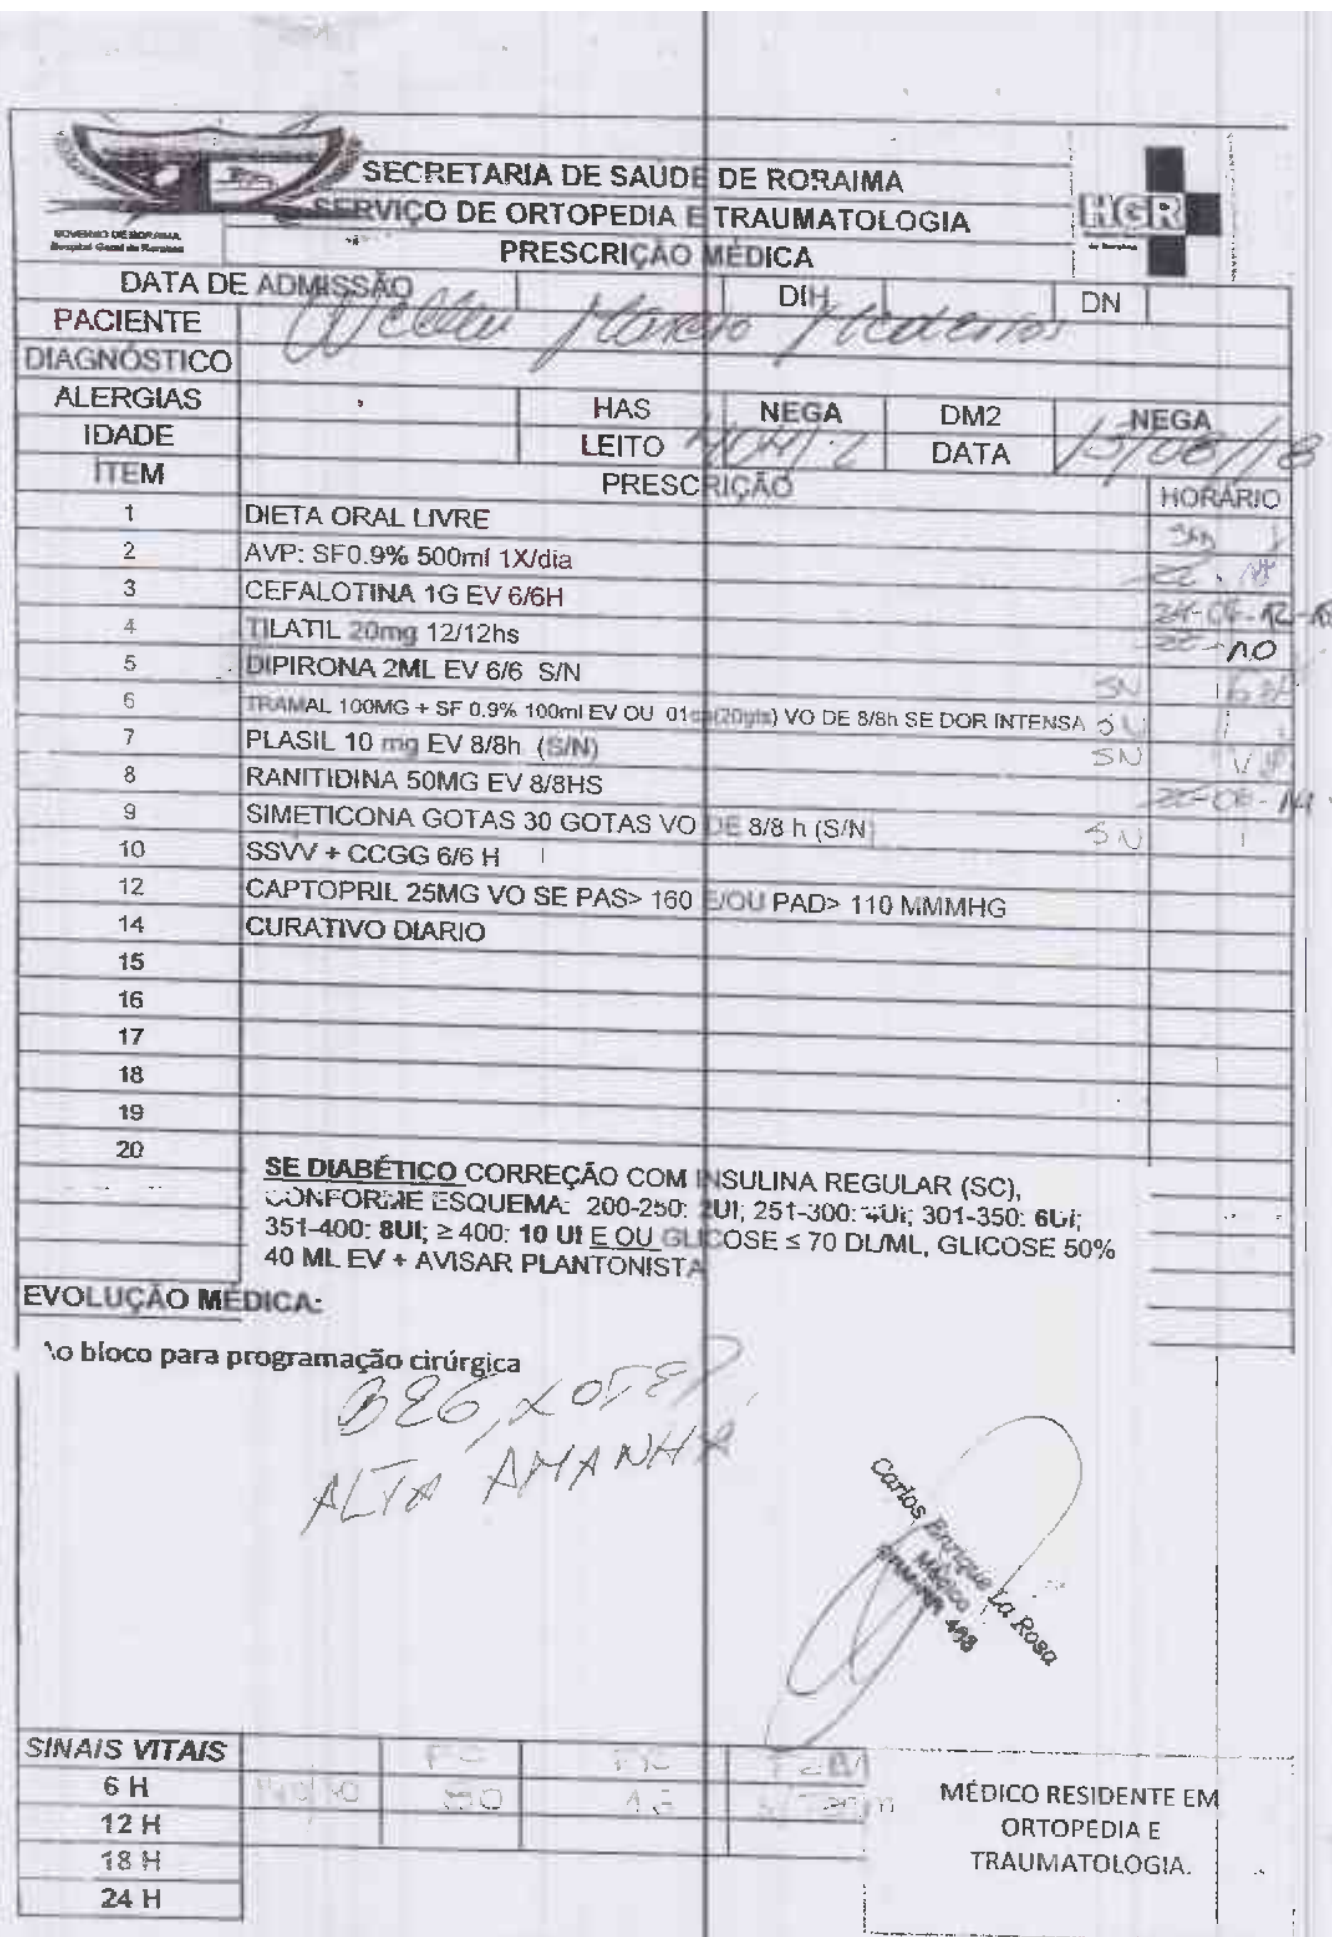 GOVERNO DE RORAIMA
Hospital Geral de Roraima
SECRETARIA DE SAÚDE DE RORAIMA
SERVIÇO DE ORTOPEDIA E TRAUMATOLOGIA
PRESCRIÇÃO MÉDICA
HGR
de Roraima
DATA DE ADMISSÃO DIH DN
PACIENTE
DIAGNÓSTICO
ALERGIAS HAS NEGA DM2 NEGA
IDADE LEITO DATA 15/08/18
ÍTEM PRESCRIÇÃO HORÁRIO
1 DIETA ORAL LIVRE
2 AVP: SF0.9% 500ml 1X/dia 22
3 CEFALOTINA 1G EV 6/6H
4 TILATIL 20mg 12/12hs 22 - 10
5 DIPIRONA 2ML EV 6/6 S/N SN
6 TRAMAL 100MG + SF 0.9% 100ml EV OU 01 (20gts) VO DE 8/8h SE DOR INTENSA
7 PLASIL 10 mg EV 8/8h (S/N) SN
8 RANITIDINA 50MG EV 8/8HS
9 SIMETICONA GOTAS 30 GOTAS VO DE 8/8 h (S/N) SN
10 SSVV + CCGG 6/6 H
12 CAPTOPRIL 25MG VO SE PAS> 160 E/OU PAD> 110 MMMHG
14 CURATIVO DIARIO
15
16
17
18
19
20
SE DIABÉTICO CORREÇÃO COM INSULINA REGULAR (SC),
CONFORME ESQUEMA: 200-250: 2UI; 251-300: 4UI; 301-350: 6UI;
351-400: 8UI; ≥ 400: 10 UI E OU GLICOSE ≤ 70 DL/ML, GLICOSE 50%
40 ML EV + AVISAR PLANTONISTA
EVOLUÇÃO MÉDICA:
\o bloco para programação cirúrgica
BEG,
ALTA AMANHÃ
Carlos Enrique La Rosa
Médico
SINAIS VITAIS
6 H
12 H
18 H
24 H
MÉDICO RESIDENTE EM
ORTOPEDIA E
TRAUMATOLOGIA.